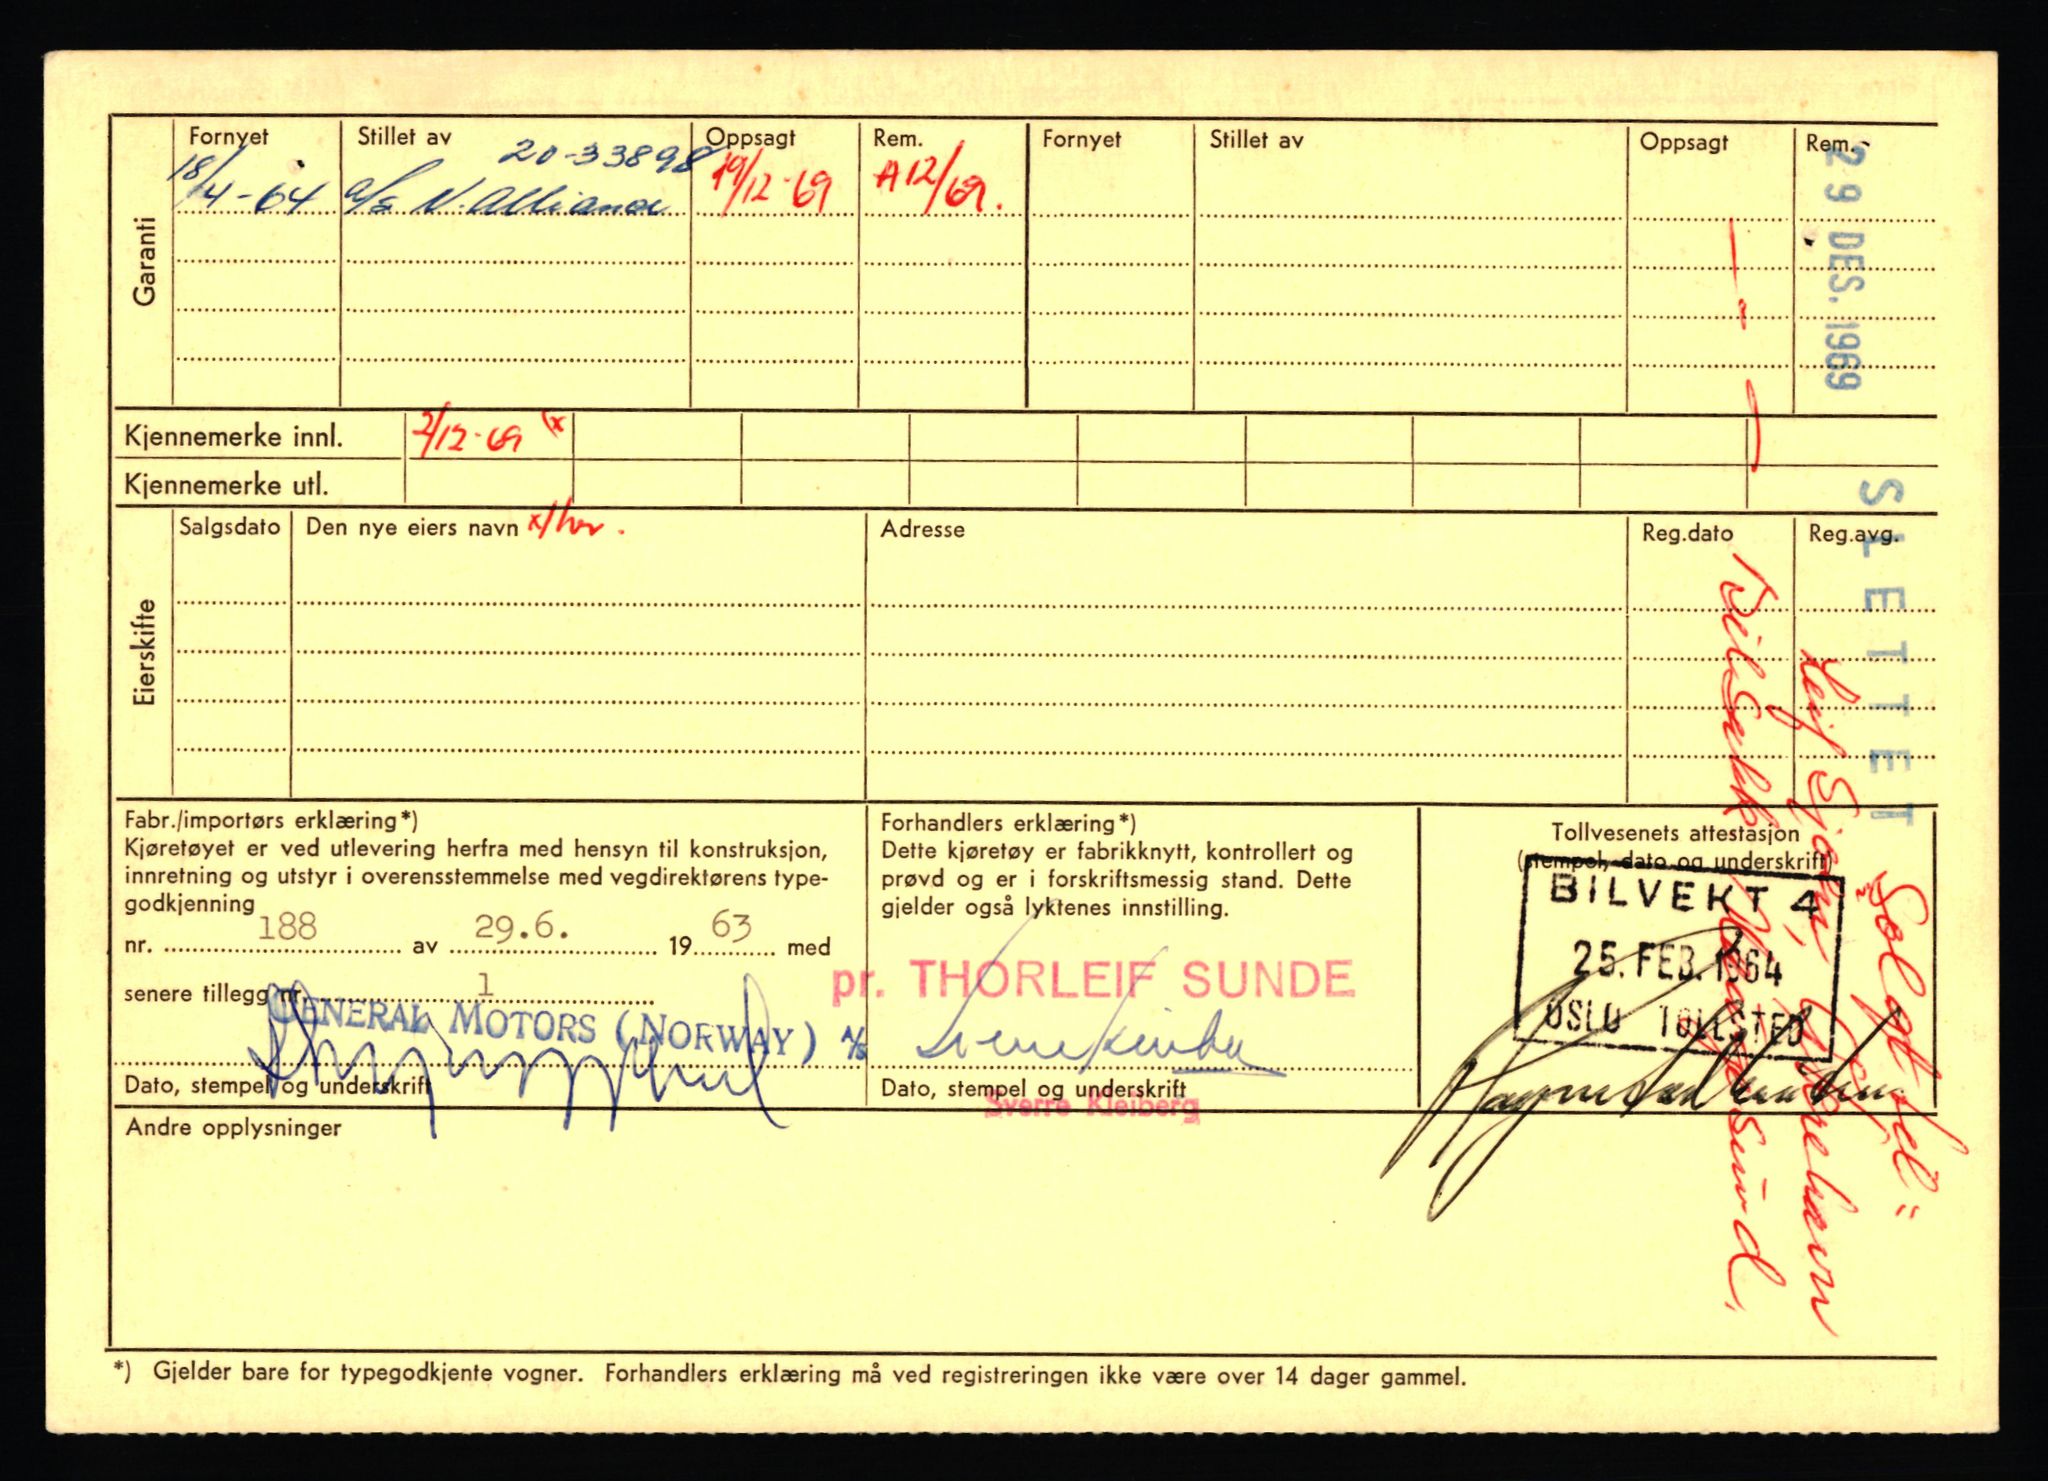 Garanti
Fornyet Stillet av Oppsagt Rem. Fornyet Stillet av Oppsagt Rem.
20-33898
18/4-64 a/s N. Alliance 19/12-69 A12/69.
29 DES. 1969
Kjennemerke innl. 2/12-69 (x
Kjennemerke utl.
SLETTET
Eierskifte
Salgsdato Den nye eiers navn x/her. Adresse Reg.dato Reg.avg.
Solgt til:
Leif Sjøen, Åkrehavn
Fabr./importørs erklæring*)
Kjøretøyet er ved utlevering herfra med hensyn til konstruksjon,
innretning og utstyr i overensstemmelse med vegdirektørens type-
godkjenning
nr. 188 av 29.6. 1963 med
senere tillegg nr. 1
GENERAL MOTORS (NORWAY) A/S
Dato, stempel og underskrift
Forhandlers erklæring*)
Dette kjøretøy er fabrikknytt, kontrollert og
prøvd og er i forskriftsmessig stand. Dette
gjelder også lyktenes innstilling.
pr. THORLEIF SUNDE
Dato, stempel og underskrift
Sverre Kleiberg
Tollvesenets attestasjon
(stempel, dato og underskrift)
BILVEKT 4
25. FEB. 1964
OSLO TOLLSTED
Andre opplysninger
*) Gjelder bare for typegodkjente vogner. Forhandlers erklæring må ved registreringen ikke være over 14 dager gammel.